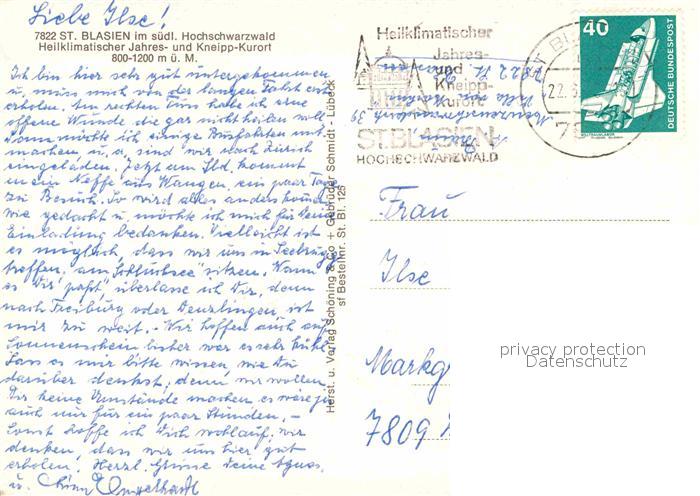 Liebe Ilse!
7822 ST. BLASIEN im südl. Hochschwarzwald
Heilklimatischer Jahres- und Kneipp-Kurort
800-1200 m ü. M.
Ich bin hier sehr gut untergekommen
u. muss mich von der langen Fahrt erst
erholen. Am rechten Fuss habe ich eine
offene Wunde die gar nicht heilen will.
Dann möchte ich einige Ausfahrten mit-
machen u. a. sind wir nach Zürich
eingeladen. Jetzt am kommt
mein Neffe aus Wangen, ein paar Tage
zu Besuch. So wird alles anders kommen
wie gedacht u. möchte ich mich für Deine
Einladung bedanken. Vielleicht ist
es möglich, dass wir uns in Seebrugg
treffen, am "Schluchsee" sitzen. Wann
es Dir paßt überlasse ich Dir, denn
nach Freiburg oder Denzlingen, ist
mir zu weit. Wir hoffen auch auf
Sonnenschein bisher war es sehr kühl.
Lass es mir bitte wissen, wie Du
darüber denkst, denn wir wollen
Dir keine Umstände machen es wäre ja
auch nur für ein paar Stunden, -
Sonst hoffe ich Dich wohlauf, wir
denken, dass wir uns hier gut
erholen. Herzl. Grüsse Deine
u.
Herst. u. Verlag Schöning & Co + Gebrüder Schmidt - Lübeck
sf Bestellnr. St. Bl. 126
Heilklimatischer
Jahres-
und
Kneipp-
Kurort
ST.BLASIEN
HOCHSCHWARZWALD
22.6.
40
DEUTSCHE BUNDESPOST
7822 St. Blasien
Frau
Ilse
Markg
7809
privacy protection
Datenschutz